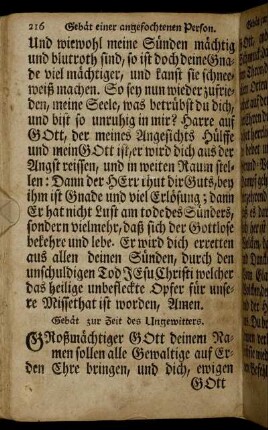 216 Gebät einer angefochtenen Person.
Und wiewohl meine Sünden mächtig
und blutroth sind, so ist doch deine Gna-
de viel mächtiger, und kanst sie schnee-
weiß machen. So sey nun wieder zufrie-
den, meine Seele, was betrübst du dich,
und bist so unruhig in mir? Harre auf
GOtt, der meines Angesichts Hülffe
und mein GOtt ist, er wird dich aus der
Angst reissen, und in weiten Raum stel-
len: Dann der HErr thut dir Guts, bey
ihm ist Gnade und viel Erlösung; dann
Er hat nicht Lust am tode des Sünders,
sondern vielmehr, daß sich der Gottlose
bekehre und lebe. Er wird dich erretten
aus allen deinen Sünden, durch den
unschuldigen Tod JEsu Christi welcher
das heilige unbefleckte Opfer für unse-
re Missethat ist worden, Amen.
Gebät zur Zeit des Ungewitters.
GRoßmächtiger GOtt deinem Na-
men sollen alle Gewaltige auf Er-
den Ehre bringen, und dich, ewigen
GOtt